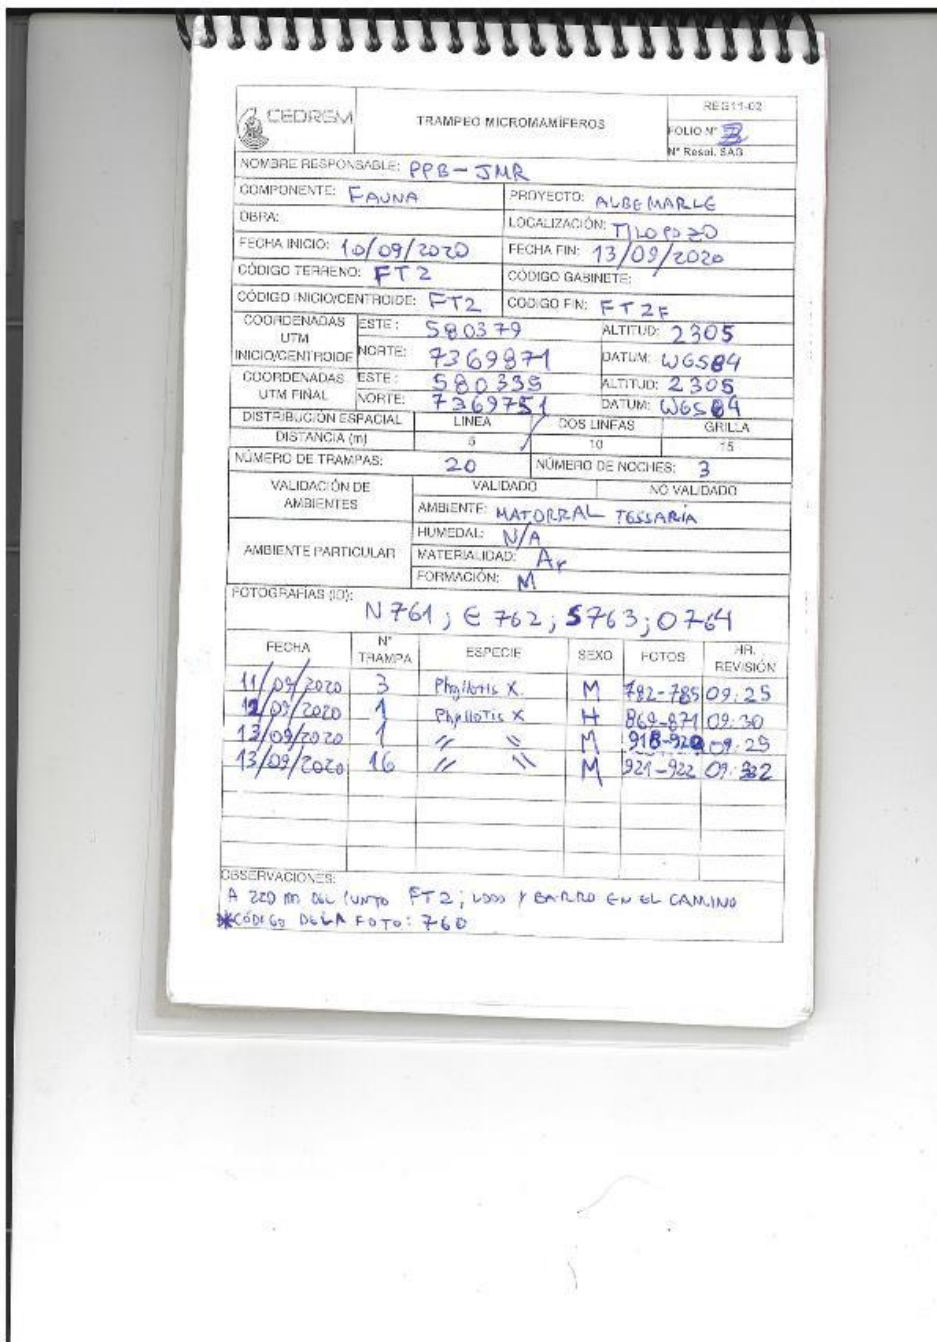 CEDREM
TRAMPEO MICROMAMÍFEROS
REG11-02
FOLIO N°
N° Resol. SAG
NOMBRE RESPONSABLE: PPB-JMR
COMPONENTE: FAUNA PROYECTO: ALBEMARLE
OBRA: LOCALIZACIÓN: TILOPOZO
FECHA INICIO: 10/09/2020 FECHA FIN: 13/09/2020
CÓDIGO TERRENO: FT2 CÓDIGO GABINETE:
CÓDIGO INICIO/CENTROIDE: FT2 CODIGO FIN: FT2F
COORDENADAS UTM INICIO/CENTROIDE ESTE: 580379 ALTITUD: 2305
NORTE: 7369871 DATUM: WGS84
COORDENADAS UTM FINAL ESTE: 580339 ALTITUD: 2305
NORTE: 7369751 DATUM: WGS84
DISTRIBUCIÓN ESPACIAL LINEA DOS LINEAS GRILLA
DISTANCIA (m) 5 10 15
NÚMERO DE TRAMPAS: 20 NÚMERO DE NOCHES: 3
VALIDACIÓN DE AMBIENTES VALIDADO NO VALIDADO
AMBIENTE: MATORRAL TESSARIA
AMBIENTE PARTICULAR HUMEDAL: N/A
MATERIALIDAD: Ar
FORMACIÓN: M
FOTOGRAFÍAS (ID):
N761; E 762; S763; O764
FECHA N° TRAMPA ESPECIE SEXO FOTOS HR. REVISIÓN
11/09/2020 3 Phyllotis X. M 782-785 09:25
12/09/2020 1 Phyllotis X H 869-871 09:30
13/09/2020 1 " " M 918-920 09:29
13/09/2020 16 " " M 921-922 09:32
OBSERVACIONES:
A 220 m DEL PUNTO FT2; LODO Y BARRO EN EL CAMINO
*CÓDIGO DE LA FOTO: 760